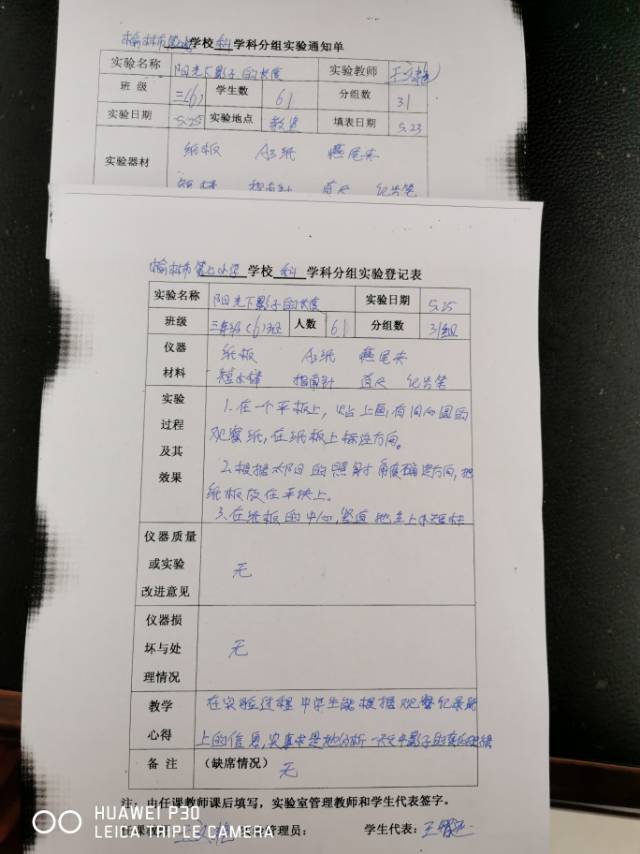 榆林市第 学校 科 学科分组实验通知单
实验名称 阳光下影子的长度 实验教师
班 级 三(6) 学生数 61 分组数 31
实验日期 5.25 实验地点 教室 填表日期 5.23
实验器材 纸板 A3纸 燕尾夹
指南针 直尺 记号笔
榆林市第 小学 学校 科 学科分组实验登记表
实验名称 阳光下影子的长度 实验日期 5.25
班级 三年级(6)班 人数 61 分组数 31组
仪器 纸板 A3纸 燕尾夹
材料 短木棒 指南针 直尺 记号笔
实验 1.在一个平板上,贴上画有同心圆的
过程 观察纸,在纸板上标注方向。
及其 2.根据太阳的照射角度确定方向,把
效果 纸板放在平块上。
3.在纸板的中心,竖直地 上 短柱
仪器质量
或实验 无
改进意见
仪器损
坏与处 无
理情况
教学 在实验过程中学生能根据观察纪录纸
心得 上的信息,实事求是地分析一天中影子的变化规律
备 注 (缺席情况) 无
注:由任课教师课后填写,实验室管理教师和学生代表签字。
管理员: 学生代表:
HUAWEI P30
LEICA TRIPLE CAMERA